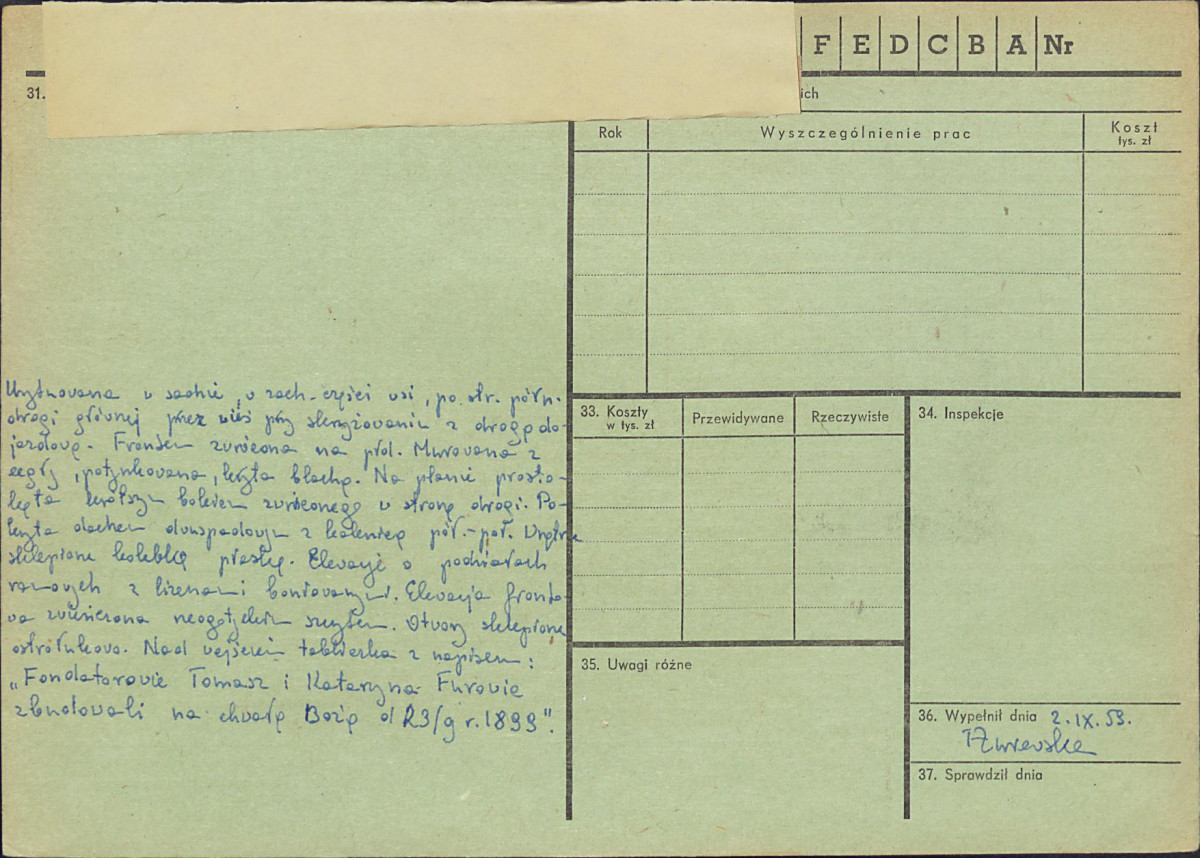 F E D C B A Nr
31.
ich
Rok Wyszczególnienie prac Koszt
tys. zł
Usytuowana w sadzie, w zach. części wsi, po str. półn.
drogi głównej przez wieś przy skrzyżowaniu z drogą do-
jazdową. Frontem zwrócona na płd. Murowana z
cegły, potynkowana, kryta blachą. Na planie prosto-
kąta krótszym bokiem zwróconego w stronę drogi. Po-
kryta dachem dwuspadowym z kalenicą pół.-poł. Wnętrze
sklepione kolebką prostą. Elewacje o podziałach
ramowych z lizenami boniowanymi. Elewacja fronto-
wa zwieńczona neogotyckim szczytem. Otwory sklepione
ostrołukowo. Nad wejściem tabliczka z napisem:
„Fondatorowie Tomasz i Katarzyna Furowie
zbudowali na chwałę Bożą d 23/9 r. 1899".
33. Koszty
w tys. zł
Przewidywane Rzeczywiste
34. Inspekcje
35. Uwagi różne
36. Wypełnił dnia 2.IX.59.
37. Sprawdził dnia